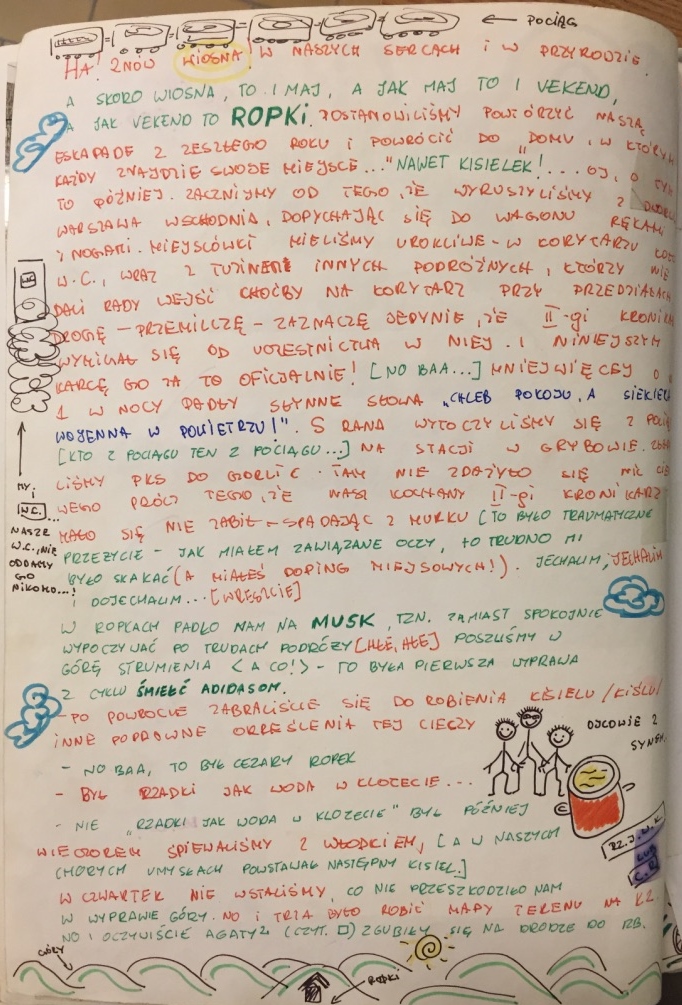 ← POCIĄG
HA! ZNÓW WIOSNA W NASZYCH SERCACH I W PRZYRODZIE.
A SKORO WIOSNA, TO 1 MAJ, A JAK MAJ TO I VEKEND,
A JAK VEKEND TO ROPKI. POSTANOWILIŚMY POWTÓRZYĆ NASZĄ
ESKAPADĘ Z ZESZŁEGO ROKU I POWRÓCIĆ DO "DOMU, W KTÓRYM
KAŻDY ZNAJDZIE SWOJE MIEJSCE..." NAWET KISIELEK!... OJ, O TYM
TO PÓŹNIEJ. ZACZNIJMY OD TEGO, ŻE WYRUSZYLIŚMY Z DWORCA
WARSZAWA WSCHODNIA, DOPYCHAJĄC SIĘ DO WAGONU RĘKAMI
I NOGAMI. MIEJSCÓWKI MIELIŚMY UROKLIWE - W KORYTARZU KOŁO
W.C., WRAZ Z TUZINEM INNYCH PODRÓŻNYCH, KTÓRZY NIE
DALI RADY WEJŚĆ CHOĆBY NA KORYTARZ PRZY PRZEDZIAŁACH
DROGĘ - PRZEMILCZĘ - ZAZNACZĘ JEDYNIE, ŻE II-gi KRONIKARZ
WYMIGAŁ SIĘ OD UCZESTNICTWA W NIEJ. I NINIEJSZYM
KARCĘ GO ZA TO OFICJALNIE! [NO BAA...] MNIEJ WIĘCEJ O
1 W NOCY PADŁY SŁYNNE SŁOWA „CHLEB POKOJU, A SIEKIERA
WOJENNA W POWIETRZU!". S RANA WYTOCZYLIŚMY SIĘ Z
[KTO Z POCIĄGU TEN Z POCIĄGU...] NA STACJI W GRYBOWIE.
LIŚMY PKS DO GORLIC. TAM NIE ZDAŻYŁO SIĘ NIC
WEGO PRÓCZ TEGO, ŻE NASZ KOCHANY II-gi KRONIKARZ
MAŁO SIĘ NIE ZABIŁ - SPADAJĄC Z MURKU [TO BYŁO TRAUMATYCZNE
PRZEŻYCIE - JAK MIAŁEM ZAWIĄZANE OCZY, TO TRUDNO MI
BYŁO SKAKAĆ (A MIAŁEŚ DOPING MIEJSOWYCH!). JECHALIM, JECHALIM
I DOJECHALIM... [WRESZCIE]
MY I
W.C. ...
NASZE
W.C., NIE
ODDAMY
GO
NIKOMU...!
W ROPKACH PADŁO NAM NA MUSK, TZN. ZAMIAST SPOKOJNIE
WYPOCZYWAĆ PO TRUDACH PODRÓŻY [HŁE, HŁE] POSZLIŚMY W
GÓRĘ STRUMIENIA <A CO!> - TO BYŁA PIERWSZA WYPRAWA
Z CYKLU ŚMIERĆ ADIDASOM.
- PO POWROCIE ZABRALIŚCIE SIĘ DO ROBIENIA KIŚIELU /KIŚLU/
INNE POPRAWNE OKREŚLENIA TEJ CIECZY
- NO BAA, TO BYŁ CEZARY ROPEK
- BYŁ RZADKI JAK WODA W KLOZECIE...
- NIE „RZADKI JAK WODA W KLOZECIE" BYŁ PÓŹNIEJ
OJCOWIE Z
SYNEM.
RZ. J. W. K.
LUB
C.R.
WIECZOREM ŚPIEWALIŚMY Z WŁODKIEM, [A W NASZYCH
CHORYCH UMYSŁACH POWSTAWAŁ NASTĘPNY KISIEL.]
W CZWARTEK NIE WSTALIŚMY, CO NIE PRZESZKODZIŁO NAM
W WYPRAWIE GÓRY. NO I TRZA BYŁO ROBIĆ MAPY TERENU NA KZ.
NO I OCZYWIŚCIE AGATY2 (CZYT. □) ZGUBIŁY SIĘ NA DRODZE DO RB.
GÓRY
ROPKI